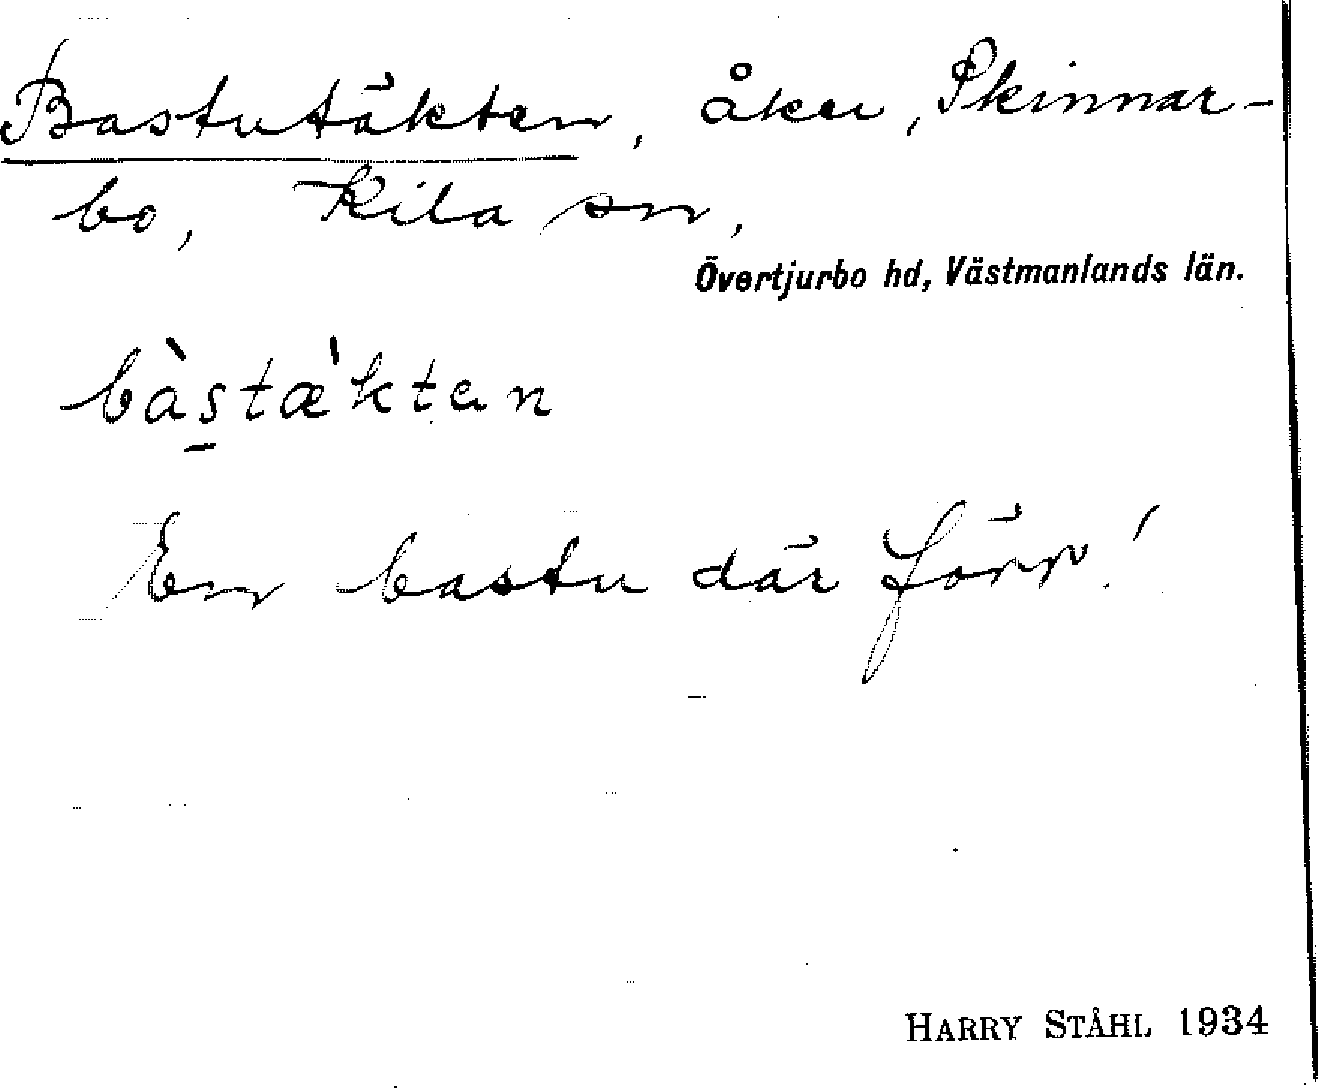 Bastutäkten, åker, Skinnar-
bo, Kila sn,
Övertjurbo hd, Västmanlands län.
bàstæ̀ktan
En bastu där förr!
HARRY STÅHL 1934